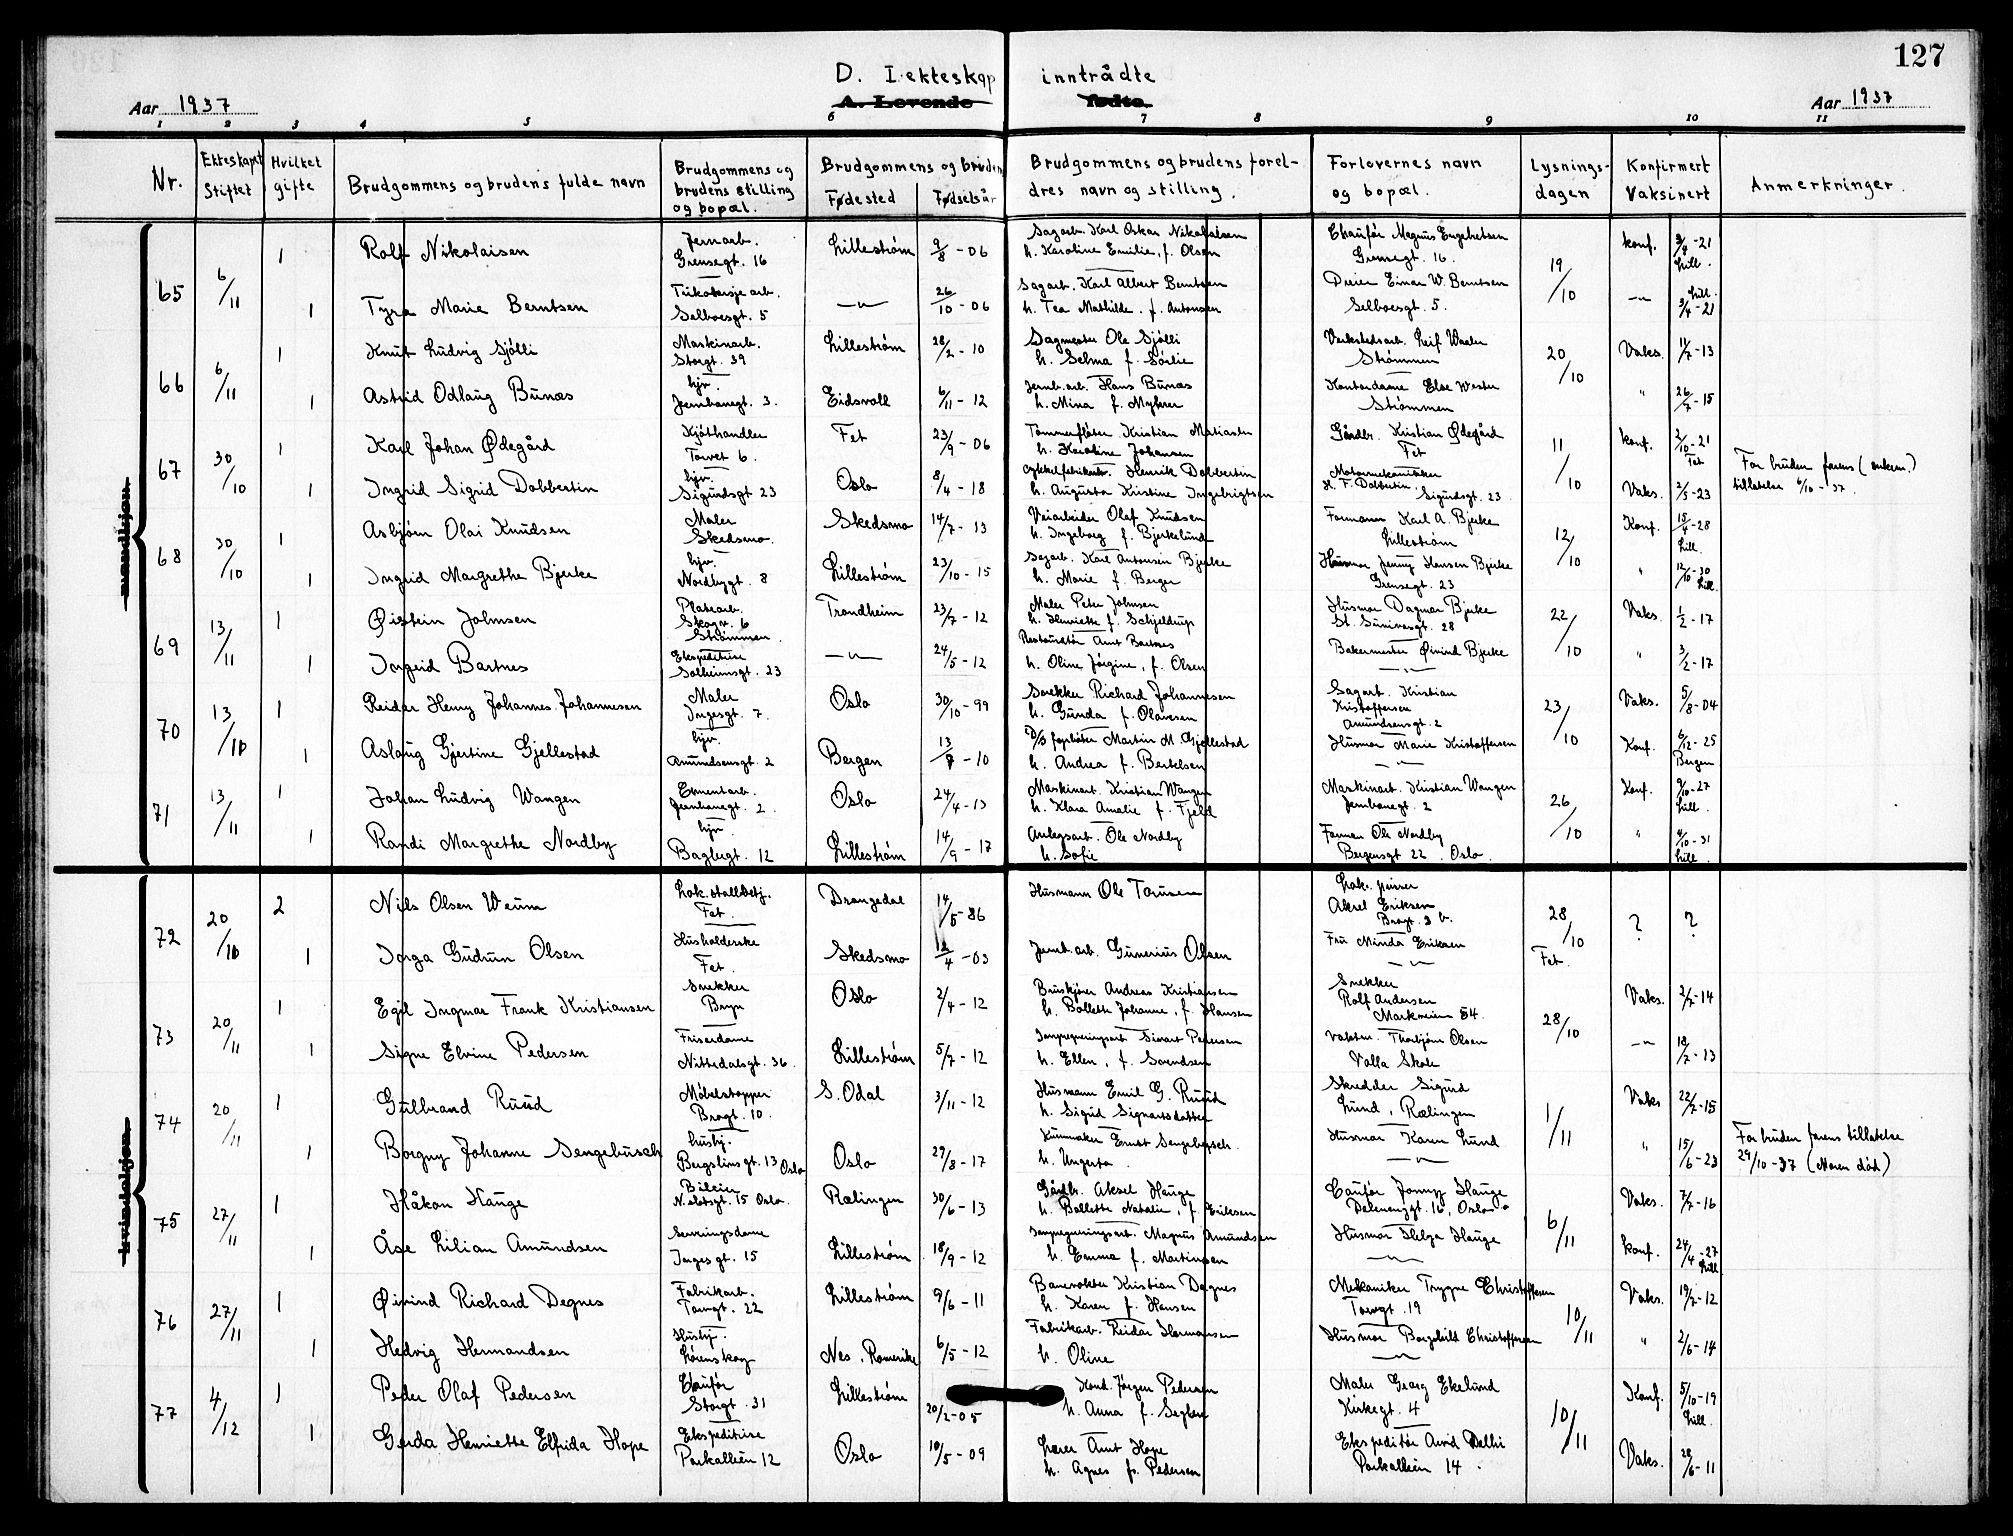 127
D. I ekteskap inntrådte
A. Levende fødte.
Aar 1937
Aar 1937
1 2 3 4 5 6 7 8 9 10 11
Nr. Ekteskapet Stiftet Hvilket gifte Brudgommens og brudens fulde navn Brudgommens og brudens stilling og bopæl. Brudgommens og brudens Fødested Fødselsår Brudgommens og brudens foreldres navn og stilling. Forlovernes navn og bopæl. Lysningsdagen Konfirmert Vaksinert Anmerkninger.
mandkjøn
65 6/11 1 Rolf Nikolaisen Jernarb. Grensegt. 16 Lillestrøm 9/8-06 Sagarb. Karl Oskar Nikolaisen h. Karoline Emilie, f. Olsen Chaufør Magnus Engebretsen Grensegt. 16. 19/10 konf. 3/4-21 Lill.
1 Tyra Marie Berntsen Trikotasje arb. Solbergt. 5 —"— 26/10-06 Sagarb. Karl Albert Berntsen h. Tea Mathilde f. Antonsen Dreier Einar W. Berntsen 5. —"— Lill. 3/4-21
66 6/11 1 Knut Ludvig Sjølli Maskinarb. Storgt. 39 Lillestrøm 28/2-10 Sagmester Ole Sjølli h. Selma f. Sørlie Verkstedsarb. Leif Waaler Strømmen 20/10 Vaks. 11/7-13
1 Astrid Odlaug Bunæs hjv. Jernbanegt. 3. Eidsvoll 6/11-12 Jernb.arb. Hans Bunæs h. Mina f. Myhrer Kontordame Else Wester Strømmen " 26/7-15
67 30/10 1 Karl Johan Ødegård Kjøtthandler Torvet 6. Fet 23/9-06 Tømmerfløter Kristian Matiasen h. Karoline Johansen Gårdbr. Kristian Ødegård Fet 11/10 konf. 2/10-21 Fet
1 Ingrid Sigrid Dobbertin hjv. Sigurdsgt 23 Oslo 8/4-18 Cykkelfabrikarb. Henrik Dobbertin h. Augusta Kristine Ingebrigtsen Motormekaniker H. F. Dobbertin Sigurdsgt. 23 Vaks. 2/5-23 For bruden farens (enkem.) tillatelse 6/10-37.
68 30/10 1 Asbjørn Olai Knudsen Maler Skedsmo. Skedsmo 14/7-13 Veiarbeider Olaf Knudsen h. Ingeborg f. Bjerkelund Formann Karl A. Bjerke Lillestrøm 12/10 Konf. 15/4-28 Lill.
1 Ingrid Margrethe Bjerke hjv. Nordbygt. 8 Lillestrøm 23/10-15 Sagarb. Karl Antonsen Bjerke h. Marie f. Berger Husmor Jenny Hansen Bjerke Grensegt. 23 " 12/10-30 Lill.
69 13/11 1 Øistein Johnsen Platearb. Skogv. 6 Strømmen Trondheim 23/7-12 Maler Peter Johnsen h. Henriette f. Schjeldrup Husmor Dagmar Bjerke St. Sunivasgt. 28 22/10 Vaks. 1/2-17
1 Ingrid Bartnes Ekspeditrise Solheimsgt. 23 —"— 24/5-12 Restauratør Arnt Bartnes h. Oline Jørgine, f. Olsen Bakermester Øivind Bjerke —"— " 3/2-17
70 13/10 1 Reidar Henry Johannes Johannesen Maler Ingesgt. 7. Oslo 30/10-99 Snekker Richard Johannesen h. Gunda f. Olavesen Sagarb. Kristian Kristoffersen Amundsensgt. 2 23/10 Vaks. 5/8-04
1 Aslaug Gjertine Gjellestad hjv. Amundsensgt. 2 Bergen 13/8-10 D/S fyrbøter Martin M. Gjellestad h. Andrea f. Bertelsen Husmor Marie Kristoffersen —"— Konf. 6/12-25 Bergen
71 13/11 1 Johan Ludvig Wangen Cementarb. Jernbanegt. 2. Oslo 24/4-13 Maskinarb. Kristian Wangen h. Klara Amalie f. Fjeld Maskinarb. Kristian Wangen Jernbanegt. 2 26/10 Konf. 9/10-27 Lill.
1 Randi Margrethe Nordby hjv. Baglergt. 12 Lillestrøm 14/9-17 Anlegsarb. Ole Nordby h. Sofie Forman Ole Nordby Bergensgt 22. Oslo. " 4/10-31 Lill.
kvindekjøn
72 20/10 2 Nils Olsen Weum Lok. stallbetj. Fet. Drangedal 14/5-86 Husmann Ole Torsen Lok. pusser Aksel Eriksen Bragt. 3 b. 28/10 Fet. ? ?
1 Inga Gudrun Olsen Husholderske Fet. Skedsmo 12/4-03 Jernb. arb. Gunerius Olsen Fru Minda Eriksen —"—
73 20/11 1 Egil Ingmar Frank Kristiansen Snekker Bryn Oslo 2/4-12 Bruskjører Andreas Kristiansen h. Bollette Johanne, f. Hansen Snekker Rolf Andersen Markveien 54. 28/10 Vaks. 2/7-14
1 Signe Elvine Pedersen Friserdame Nittedalsgt. 36. Lillestrøm 5/7-12 Impregneringsarb. Sivart Pedersen h. Ellen, f. Svendsen Vaktm. Thorbjørn Olsen Volla Skole —"— 18/7-13
74 20/11 1 Gulbrand Ruud Møbelstopper Bragt. 10. S. Odal 3/11-12 Husmann Emil G. Ruud h. Sigrid Signartsdatter Skredder Sigurd Lund, Rælingen 1/11 Vaks 22/7-15
1 Borgny Johanne Sengebusch husbj. Bergslinsgt. 13 Oslo Oslo 29/8-17 Ernst Sengebusch. h. Ungerta. Husmor Karen Lund —"— " 15/6-23 For bruden farens tillatelse 29/10-37 (Moren død)
75 27/11 1 Håkon Hauge Bileier N. Slotsgt. 15 Oslo. Rælingen 30/6-13 Gårdbr. Aksel Hauge h. Bollette Natalie, f. Eriksen Caufør Jonny Hauge Dælenenggt. 16, Oslo 6/11 Vaks. 7/7-16
1 Åse Lilian Amundsen Serveringsdame Ingesgt. 15 Lillestrøm 18/9-12 Impregneringsarb. Magnus Amundsen h. Emma f. Martinsen Husmor Helga Hauge —"— konf. 24/4-27 Lill
76 27/11 1 Øivind Richard Degnes Fabrikarb. Torvgt. 22 Lillestrøm 9/6-11 Banevokter Kristian Degnes h. Karen f. Hansen Mekaniker Trygve Christoffersen Torvgt. 19 10/11 Vaks. 19/7-12
1 Hedvig Hermandsen Husbj. Lørenskog Nes. Romerike 6/5-12 Fabrikarb. Reidar Hermansen h. Oline Husmor Borghild Christoffersen —"— " 2/6-14
77 4/12 1 Peder Olaf Pedersen Caufør Storgt. 31 Lillestrøm 20/2-05 Kond. Jørgen Pedersen h. Anna f. Seglem Maler Georg Ekelund Kirkegt. 4 10/11 Konf. 5/10-19 Lill.
1 Gerda Henriette Elfrida Hope Ekspeditrise Parkalléen 12 Oslo 10/5-09 Lærer Arnt Hope h. Agnes f. Pedersen Ekspeditør Arvid Parkalléen 14. Vaks. 28/6-11